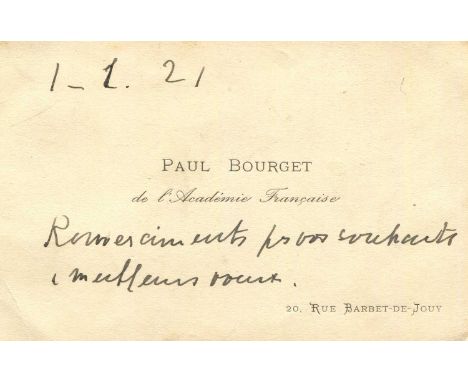 1-1. 21
PAUL BOURGET
de l'Académie Française
Remerciments pr vos souhaits
meilleurs vœux.
20, RUE BARBET-DE-JOUY